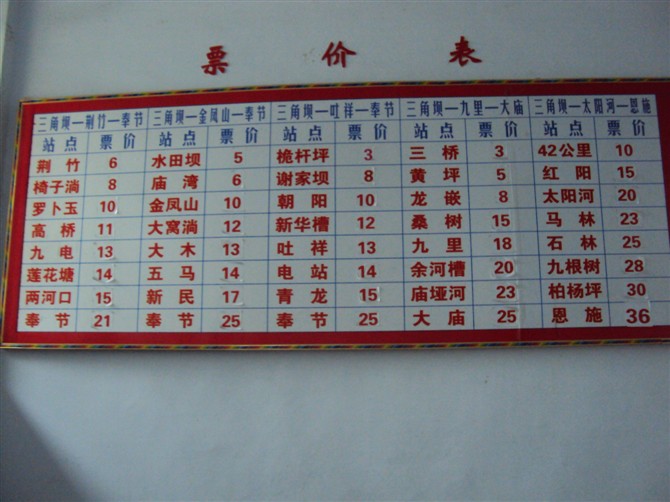 票价表
三角坝—荆竹—奉节 三角坝—金凤山—奉节 三角坝—吐祥—奉节 三角坝—九里—大庙 三角坝—太阳河—恩施
站点 票价 站点 票价 站点 票价 站点 票价 站点 票价
荆竹 6 水田坝 5 桅杆坪 3 三桥 3 42公里 10
椅子淌 8 庙湾 6 谢家坝 8 黄坪 5 红阳 15
罗卜玉 10 金凤山 10 朝阳 10 龙嵌 8 太阳河 20
高桥 11 大窝淌 12 新华槽 12 桑树 15 马林 23
九电 13 大木 13 吐祥 13 九里 18 石林 25
莲花塘 14 五马 14 电站 14 余河槽 20 九根树 28
两河口 15 新民 17 青龙 15 庙垭河 23 柏杨坪 30
奉节 21 奉节 25 奉节 25 大庙 25 恩施 36